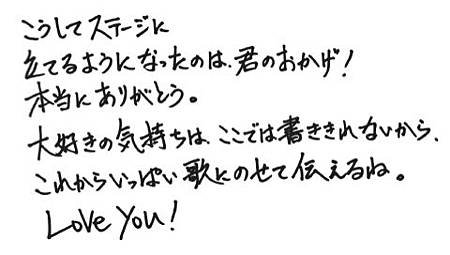 こうしてステージに
立てるようになったのは、君のおかげ!
本当にありがとう。
大好きの気持ちは、ここでは書ききれないから、
これからいっぱい歌にのせて伝えるね。
Love You!